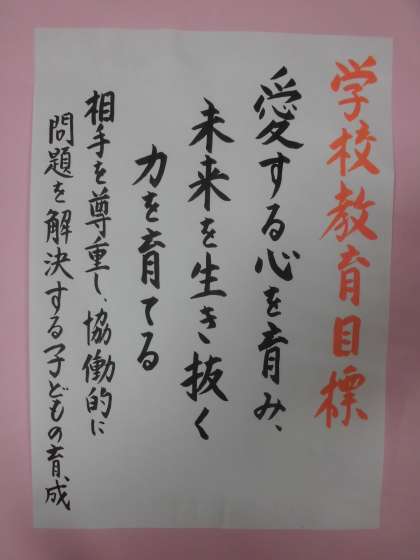 学校教育目標
愛する心を育み、
未来を生き抜く
力を育てる
相手を尊重し、協働的に
問題を解決する子どもの育成